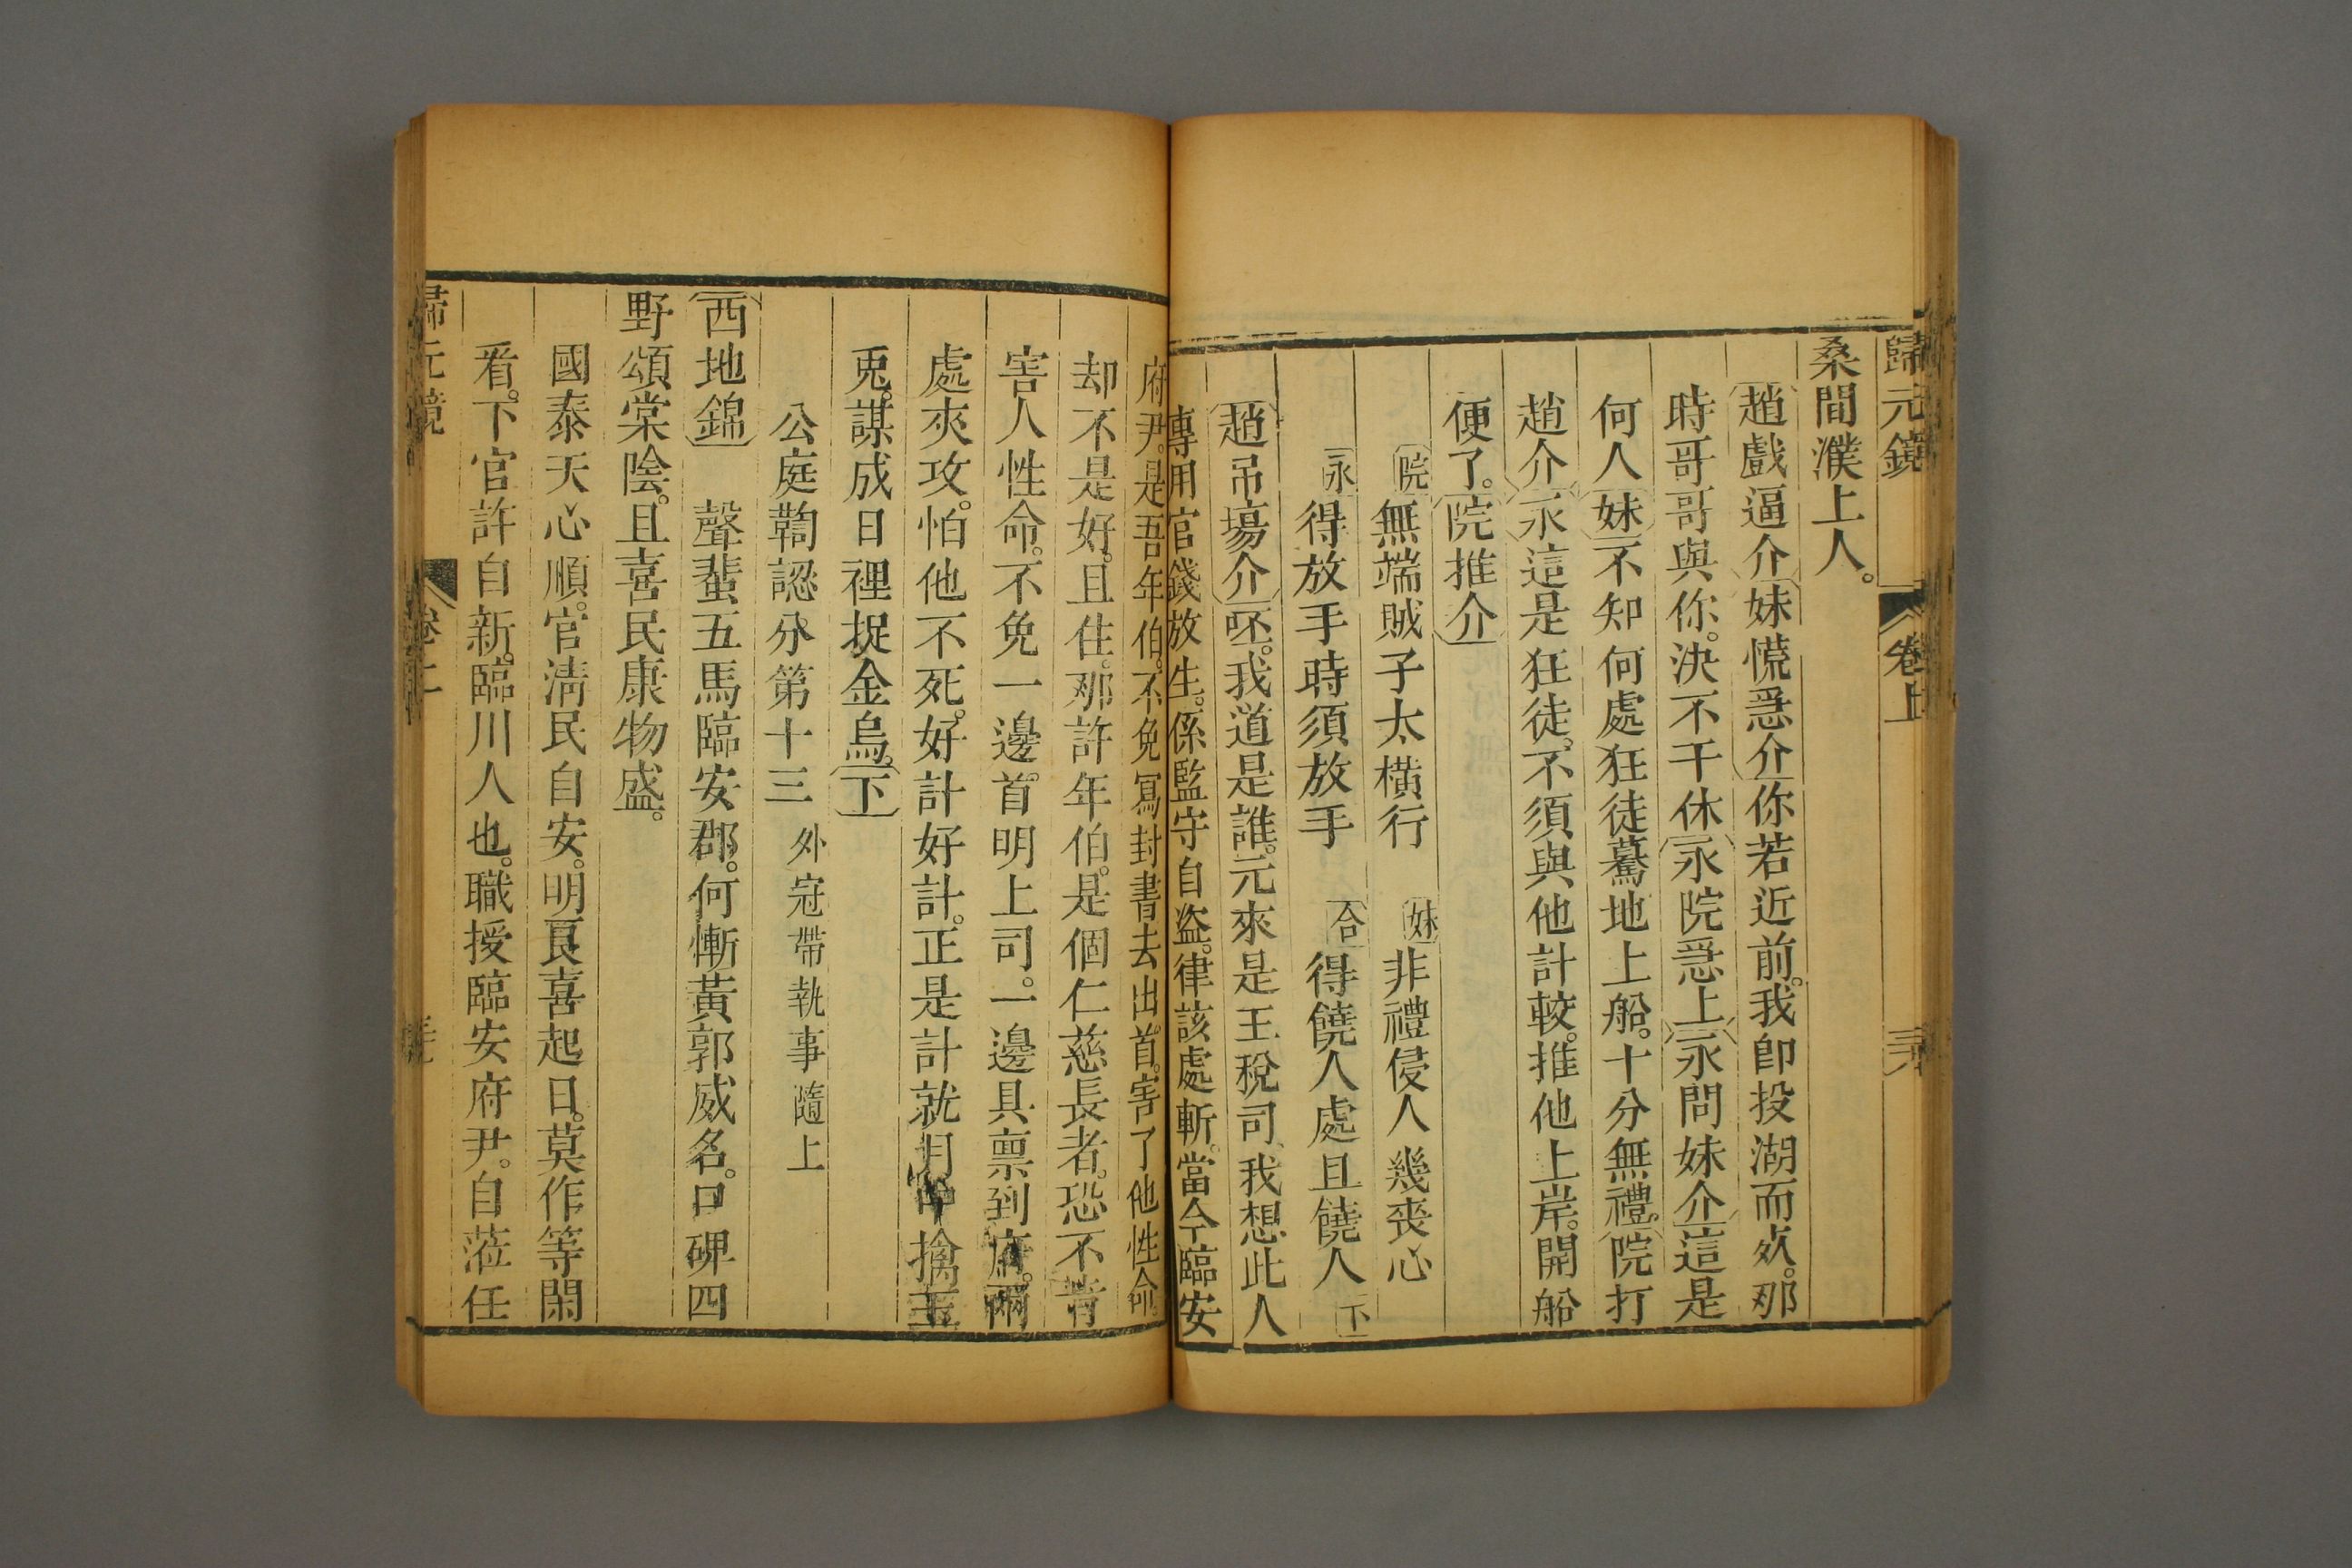 歸元鏡 卷上
桑間濮上人。
趙戲逼介妹慌急介你若近前。我卽投湖而死。那
時哥哥與你。決不干休永院急上永問妹介這是
何人妹不知何處狂徒驀地上船。十分無禮。院打
趙介永這是狂徒。不須與他計較。推他上岸。開船
便了。院推介
院無端賊子太橫行 妹非禮侵人幾喪心
永得放手時須放手 合得饒人處且饒人 下
趙吊場介呸。我道是誰。元來是王稅司。我想此人
專用官錢放生。係監守自盜。律該處斬。當今臨安
府尹。是吾年伯。不免寫封書去出首。害了他性命。
却不是好。且住。那許年伯。是個仁慈長者。恐不肯
害人性命。不免一邊首明上司。一邊具禀到府。兩
處夾攻。怕他不死。好計好計。正是計就月中擒玉
兎。謀成日裡捉金烏。下
公庭鞫認分第十三 外冠帶執事隨上
西地錦 聲蜚五馬臨安郡。何慚黃郭威名。口碑四
野頌棠陰。且喜民康物盛。
國泰天心順。官淸民自安。明良喜起日。莫作等閑
看。下官許自新。臨川人也。職授臨安府尹。自蒞任
歸元鏡